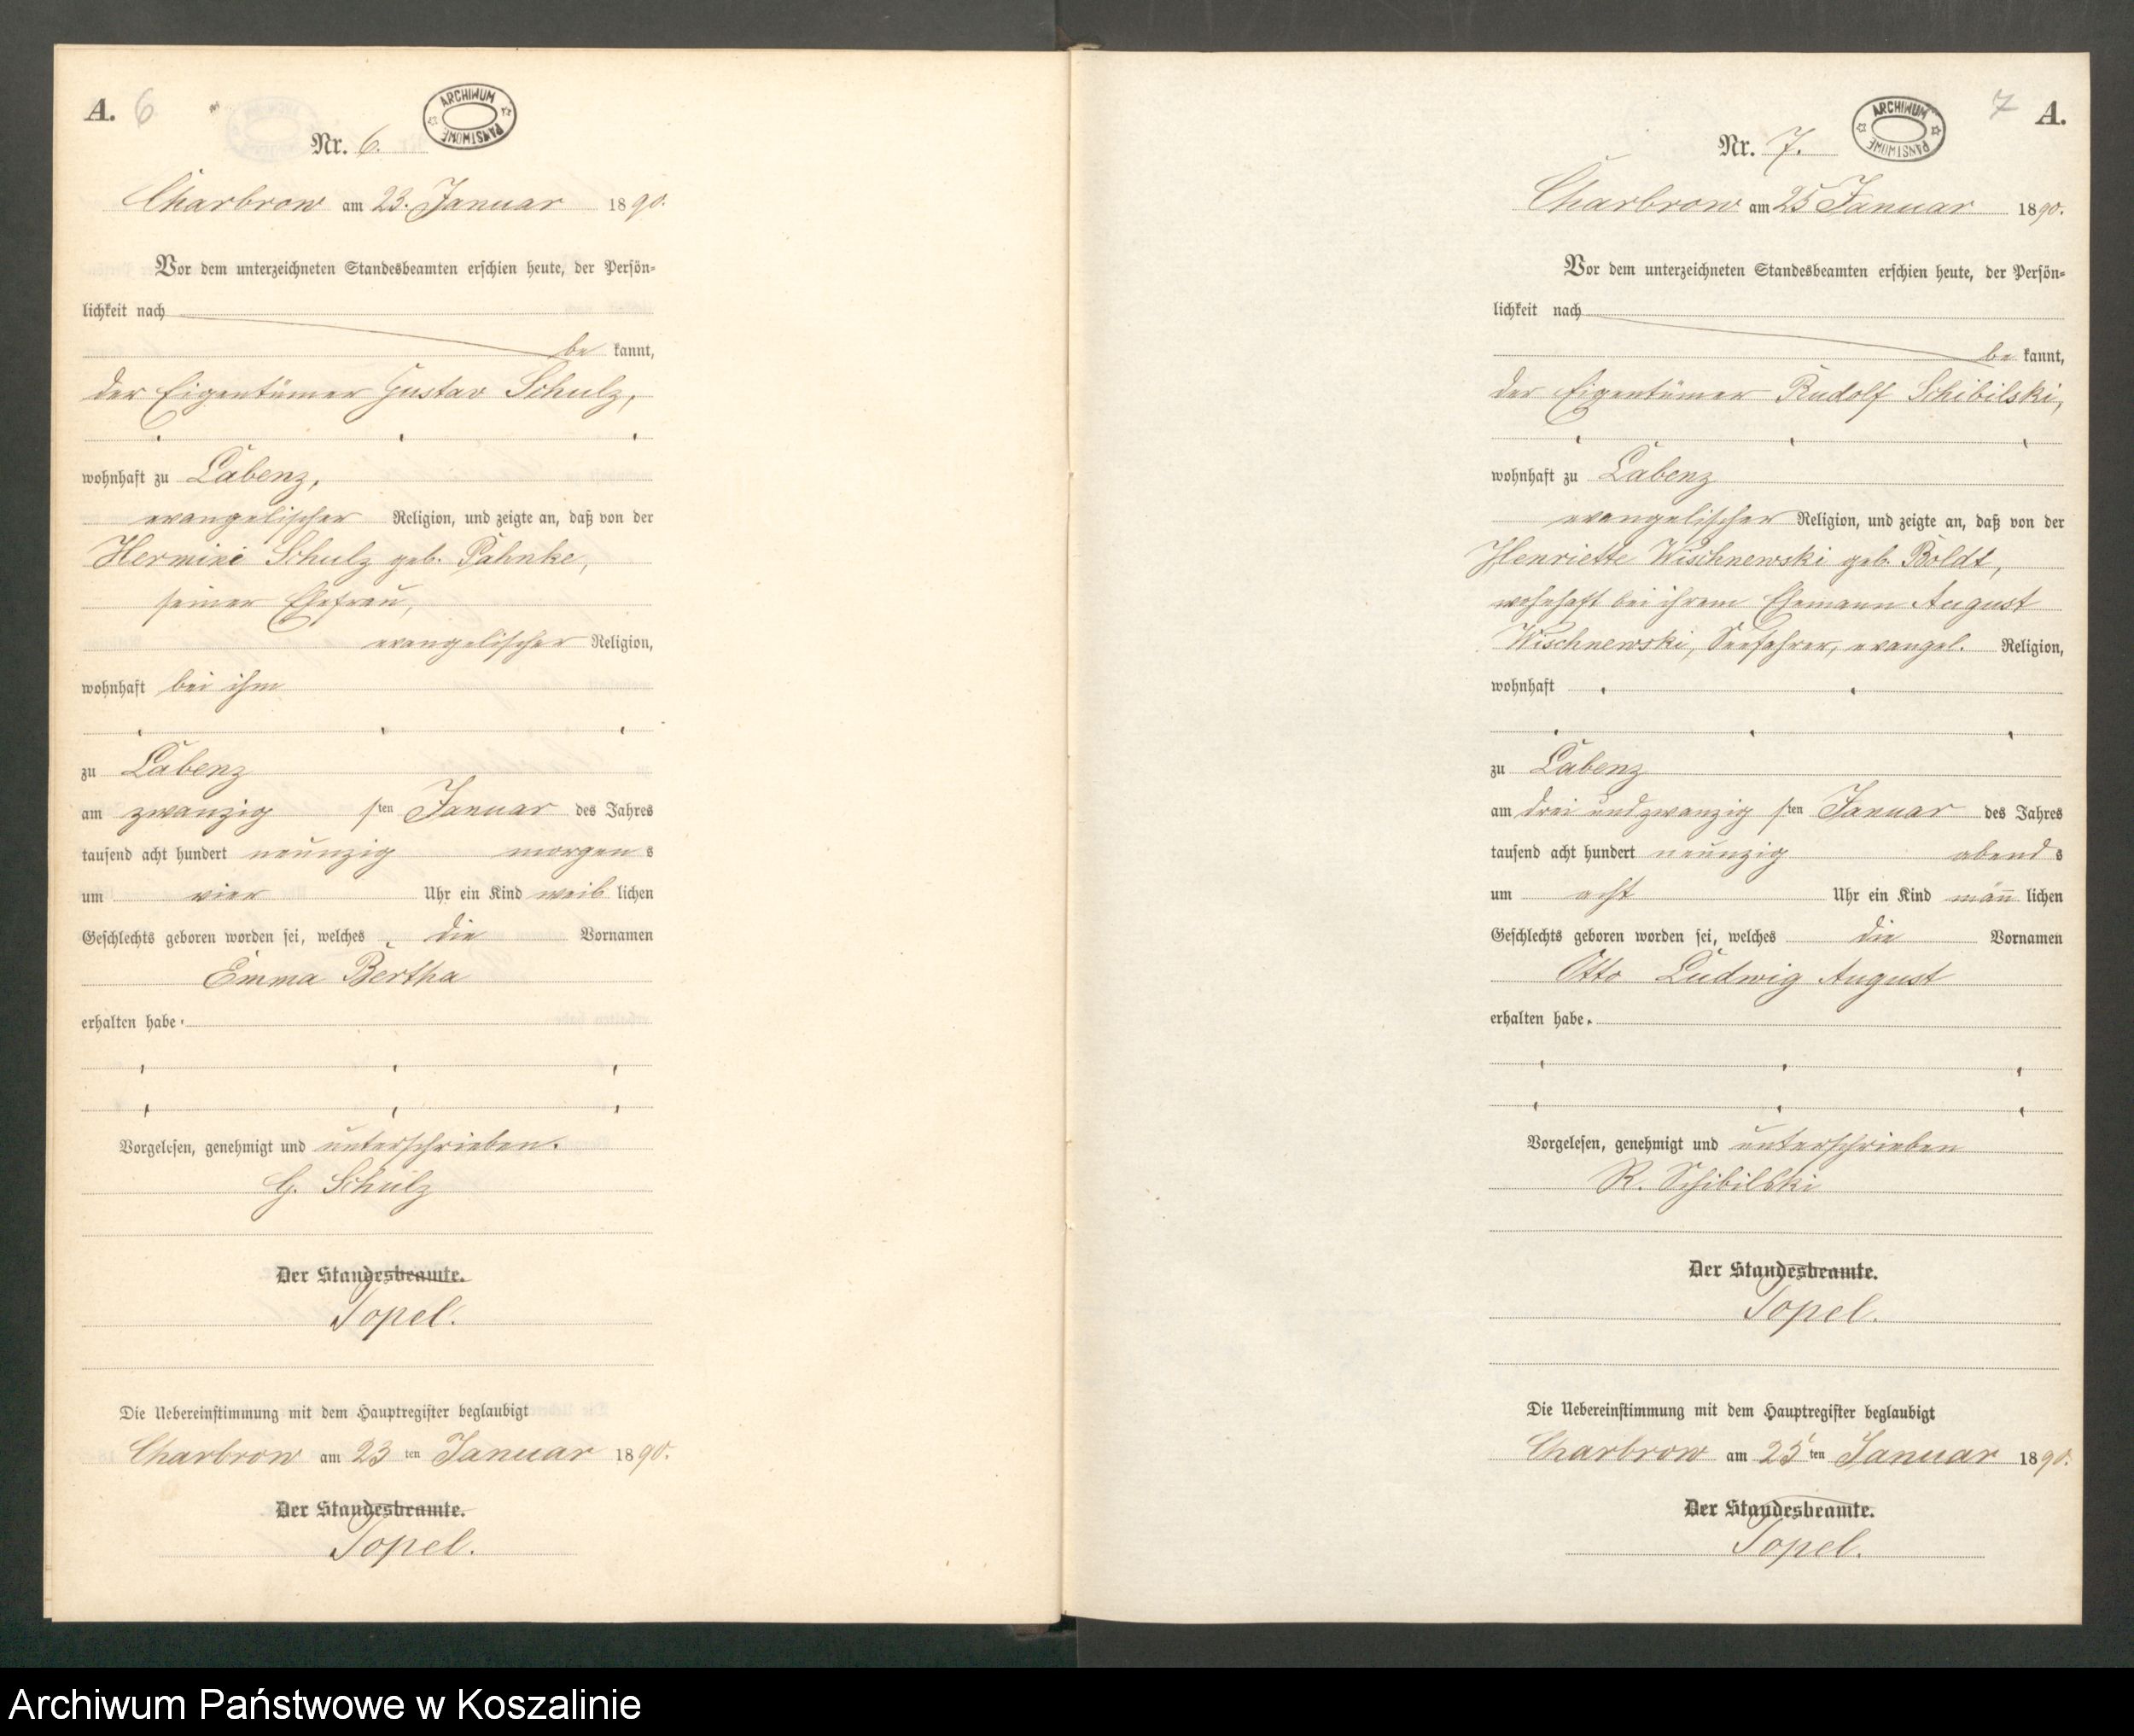 A. 6
ARCHIWUM PAŃSTWOWE
Nr. 6.
Charbrow am 23. Januar 1890.
Vor dem unterzeichneten Standesbeamten erschien heute, der Persön-
lichkeit nach
be kannt,
der Eigentümer Gustav Schulz,
wohnhaft zu Labenz,
evangelischer Religion, und zeigte an, daß von der
Hermine Schulz geb. Pahnke,
seiner Ehefrau,
evangelischer Religion,
wohnhaft bei ihm
zu Labenz
am zwanzig sten Januar des Jahres
tausend acht hundert neunzig morgen s
um vier Uhr ein Kind weib lichen
Geschlechts geboren worden sei, welches die Vornamen
Emma Bertha
erhalten habe.
Vorgelesen, genehmigt und unterschrieben.
G. Schulz
Der Standesbeamte.
Topel.
Die Uebereinstimmung mit dem Hauptregister beglaubigt
Charbrow am 23 ten Januar 1890.
Der Standesbeamte.
Topel.
7 A.
ARCHIWUM PAŃSTWOWE
Nr. 7.
Charbrow am 25 Januar 1890.
Vor dem unterzeichneten Standesbeamten erschien heute, der Persön-
lichkeit nach
be kannt,
der Eigentümer Rudolf Schibilski,
wohnhaft zu Labenz
evangelischer Religion, und zeigte an, daß von der
Henriette Wischnewski geb. Boldt,
wohnhaft bei ihrem Ehemann August
Wischnewski, Seefahrer, evangel. Religion,
wohnhaft
zu Labenz
am drei und zwanzig sten Januar des Jahres
tausend acht hundert neunzig abend s
um acht Uhr ein Kind männ lichen
Geschlechts geboren worden sei, welches die Vornamen
Otto Ludwig August
erhalten habe.
Vorgelesen, genehmigt und unterschrieben
R. Schibilski
Der Standesbeamte.
Topel.
Die Uebereinstimmung mit dem Hauptregister beglaubigt
Charbrow am 25 ten Januar 1890.
Der Standesbeamte.
Topel.
Archiwum Państwowe w Koszalinie